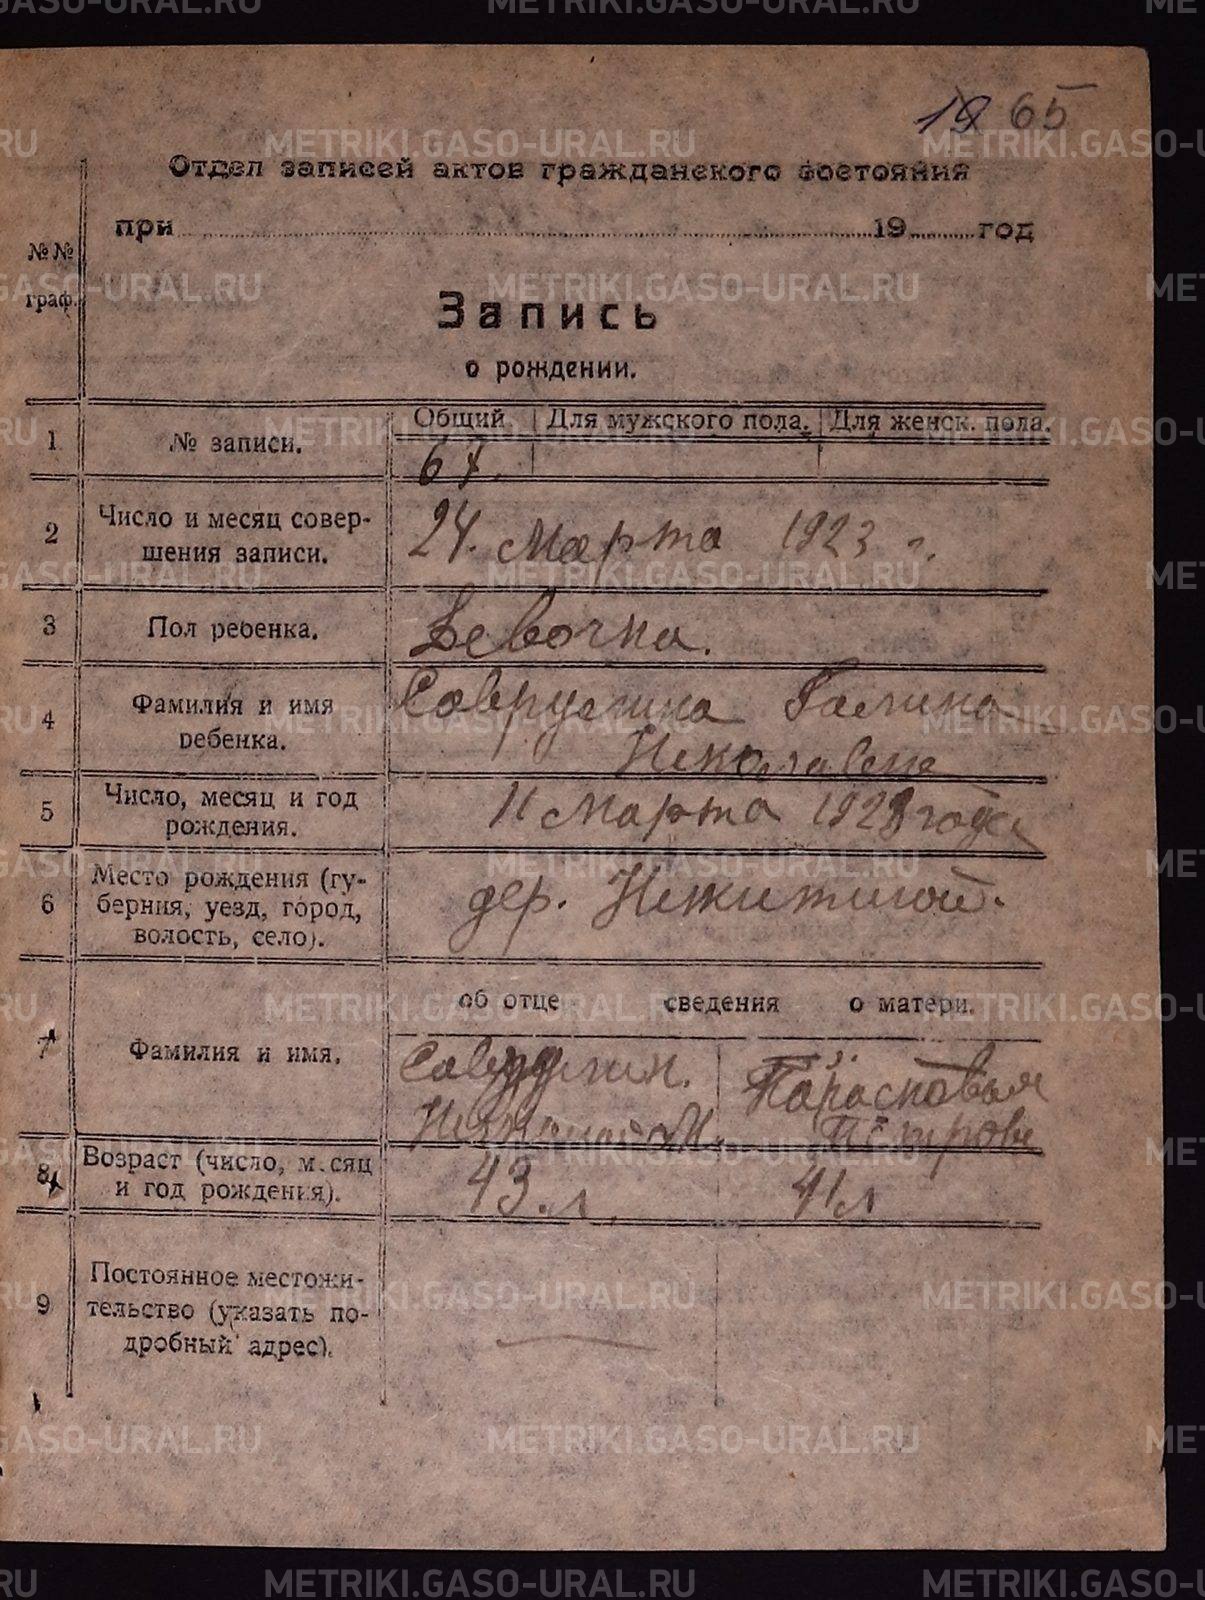 65
Отдел записей актов гражданского состояния
при 19 год
№№ граф.
Запись
о рождении.
1 № записи. Общий Для мужского пола. Для женск. пола.
67.
2 Число и месяц совер-
шения записи. 24. Марта 1923 г.
3 Пол ребенка. Девочка.
4 Фамилия и имя
ребенка. Галина
5 Число, месяц и год
рождения. 11 Марта 1923 года
6 Место рождения (гу-
берния, уезд, город,
волость, село). дер.
об отце сведения о матери.
7 Фамилия и имя. Парасковья
8 Возраст (число, месяц
и год рождения). 43 л. 41 л
9 Постоянное местожи-
тельство (указать по-
дробный адрес).
METRIKI.GASO-URAL.RU